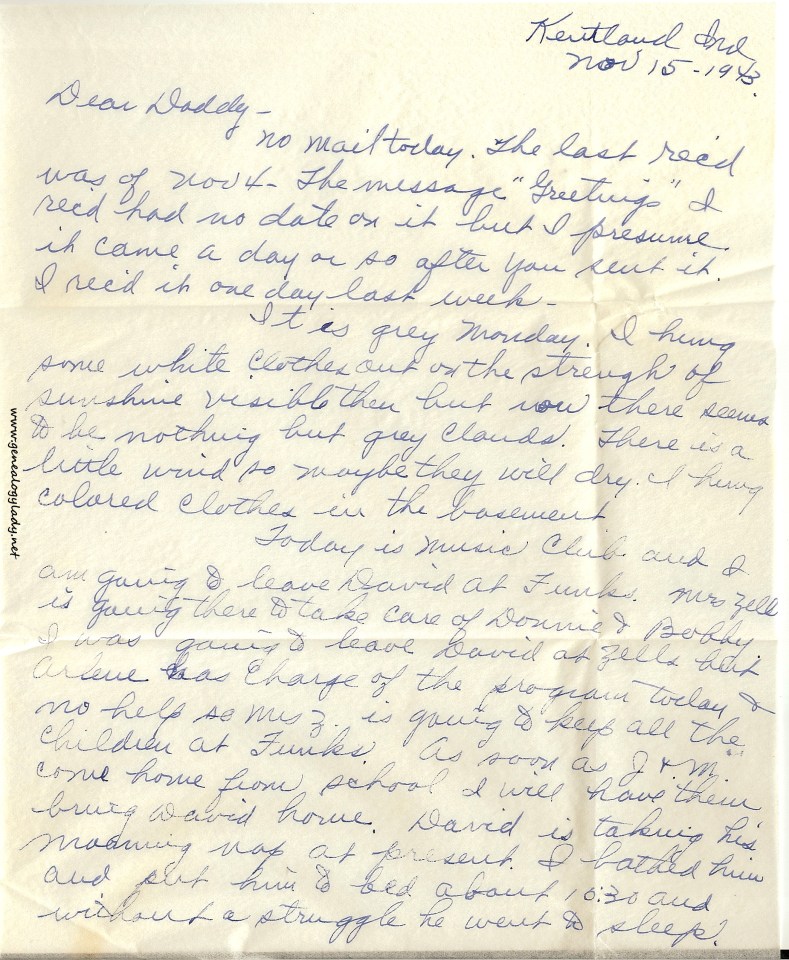 Kentland Ind
Nov 15-1943.
Dear Daddy-
No mail today. The last rec'd
was of Nov 4- The message "Greetings" I
rec'd had no date on it but I presume
it came a day or so after you sent it.
I rec'd it one day last week-
It is grey Monday. I hung
some white clothes out on the strengh of
sunshine visible then but now there seems
to be nothing but grey clouds. There is a
little wind so maybe they will dry. I hung
colored clothes in the basement
Today is Music Club and I
am going to leave David at Funks. Mrs Zell
is going there to take care of Donnie & Bobby
I was going to leave David at Zells but
Arlene has charge of the program today &
no help so Mrs Z. is going to keep all the
children at Funks. As soon as J. & M.
come home from school I will have them
bring David home. David is taking his
morning nap at present. I bathed him
and put him to bed about 10:30 and
without a struggle he went to sleep.
www.genealogylady.net